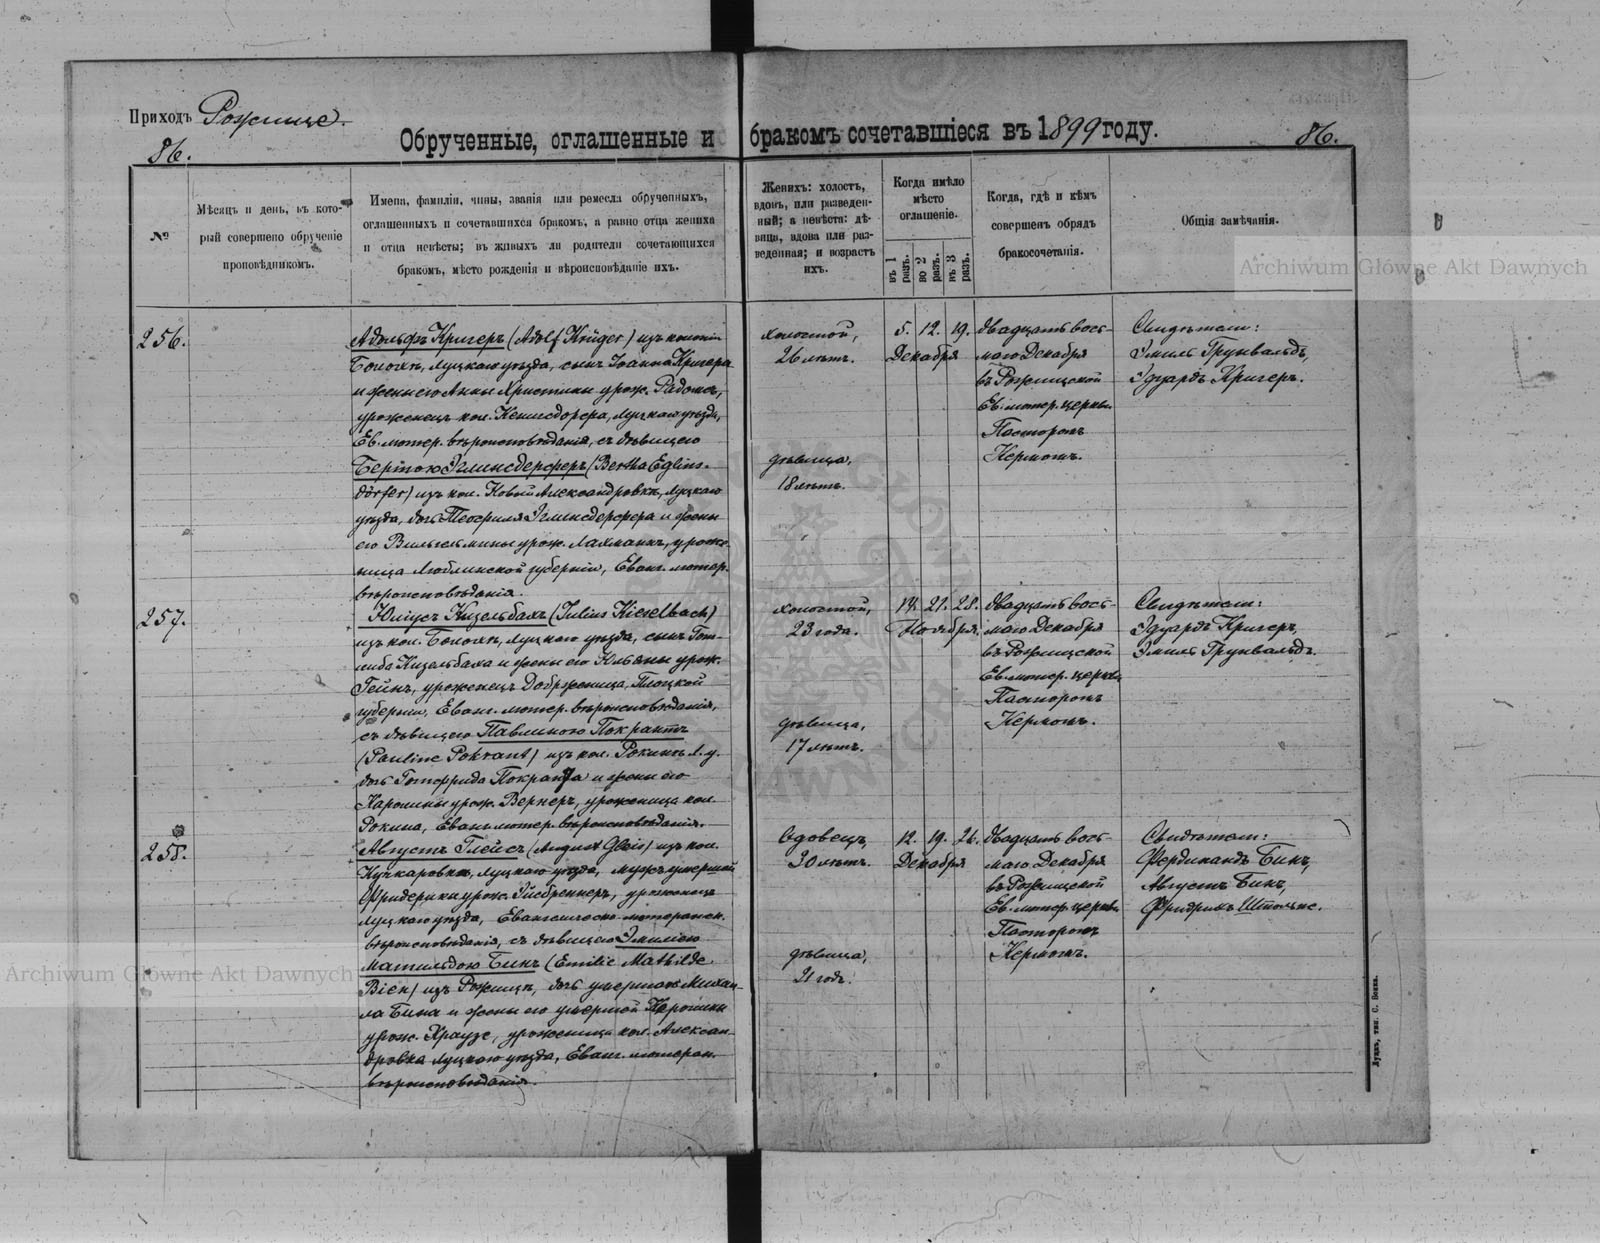 Приходъ Рожище.
Обрученные, оглашенные и бракомъ сочетавшіеся въ 1899 году.
86.
86.
№
Мѣсяцъ и день, въ кото-
рый совершено обрученіе
проповѣдникомъ.
Имена, фамиліи, чины, званія или ремесла обрученныхъ,
оглашенныхъ и сочетавшихся бракомъ, а равно отца жениха
и отца невѣсты; въ живыхъ ли родители сочетающихся
бракомъ, мѣсто рожденія и вѣроисповѣданіе ихъ.
Женихъ: холостъ,
вдовъ, или разведен-
ный; а невѣста: дѣ-
вица, вдова или раз-
веденная; и возрастъ
ихъ.
Когда имѣло
мѣсто
оглашеніе.
въ 1 разъ.
во 2 разъ.
въ 3 разъ.
Когда, гдѣ и кѣмъ
совершенъ обрядъ
бракосочетанія.
Общія замѣчанія.
Archiwum Główne Akt Dawnych
256.
Адольфъ Кригеръ (Adolf Krüger) изъ колоніи
луцкаго уѣзда, сынъ Іоанна Кригера
и жены его Анны Христины урож.
уроженецъ кол. Кенигсдорфа, луцкаго уѣзда,
Ев. лютер. вѣроисповѣданія, съ дѣвицею
Бертою Эглинсдерферъ (Bertha Eglins-
dörfer) изъ кол. Новой Александровки, луцкаго
уѣзда, дочь Теофиля Эглинсдерфера и жены
его Вильгельмины урож. Лахманъ, уроже-
ница Люблинской губерніи, Еванг. лютер.
вѣроисповѣданія.
холостой,
26 лѣтъ.
дѣвица,
18 лѣтъ.
5. 12. 19.
Декабря
двадцать вось-
маго Декабря
въ Рожищской
Ев. лютер. церкви
Пасторомъ
Керномъ.
Свидѣтели:
Эмиль Грунвальдъ,
Эдуардъ Кригеръ.
257.
Юліусъ Кизельбахъ (Julius Kieselbach)
изъ кол. луцкаго уѣзда, сынъ Гот-
либа Кизельбаха и жены его Юльяны урож.
Гейнъ, уроженецъ Плоцкой
губерніи, Еванг. лютер. вѣроисповѣданія,
съ дѣвицею Павлиною Покрантъ
(Pauline Pokrant) изъ кол. Рокинъ л. у.
дочь Готфрида Покранта и жены его
Каролины урож. Вернеръ, уроженица кол.
Рокина, Еванг. лютер. вѣроисповѣданія.
холостой,
23 года.
дѣвица,
17 лѣтъ.
14. 21. 28.
Ноября.
двадцать вось-
маго Декабря
въ Рожищской
Ев. лютер. церкви
Пасторомъ
Керномъ.
Свидѣтели:
Эдуардъ Кригеръ,
Эмиль Грунвальдъ.
258.
Августъ Глейсъ (August Gleis) изъ кол.
луцкаго уѣзда, мужъ умершей
Фридерики урож. Эйсбреннеръ, уроженецъ
луцкаго уѣзда, Евангелическо-лютеранск.
вѣроисповѣданія, съ дѣвицею Эмиліею
Матильдою Бинъ (Emilie Mathilde
Bien) изъ Рожищъ, дочь умершаго Михаи-
ла Бина и жены его умершей Каролины
урож. Краузе, уроженица кол. Алексан-
дровка луцкаго уѣзда, Еванг. лютеран.
вѣроисповѣданія.
вдовецъ,
30 лѣтъ.
дѣвица,
21 годъ.
12. 19. 26.
Декабря
двадцать вось-
маго Декабря
въ Рожищской
Ев. лютер. церкви
Пасторомъ
Керномъ.
Свидѣтели:
Фердинандъ Бинъ,
Августъ Бинъ,
Фридрихъ Штольце.
Archiwum Główne Akt Dawnych
Луцкъ, тип. С. Бокка.